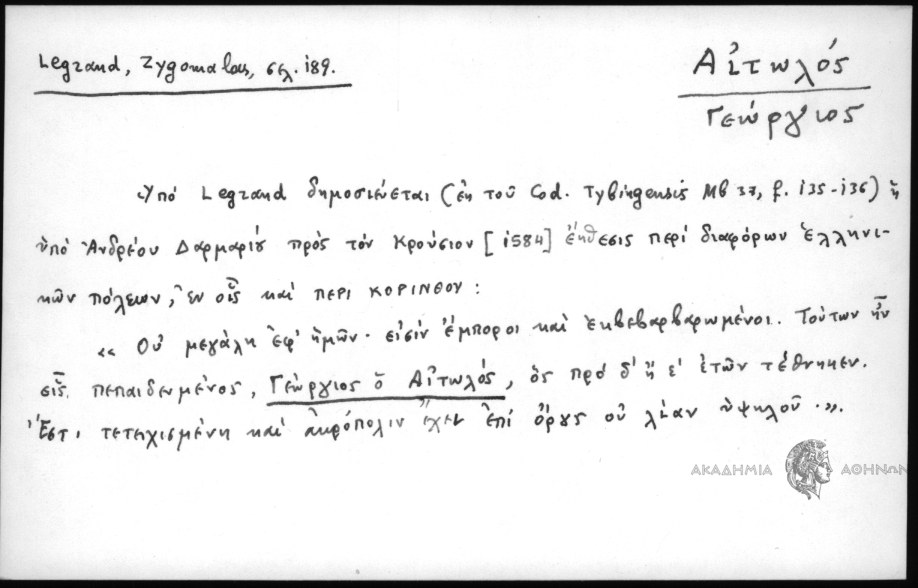 Legrand, Zygomalas, σελ. 189.
Αἰτωλός
Γεώργιος
Ὑπό Legrand δημοσιεύεται (ἐκ τοῦ Cod. Tybingensis Mb 37, f. 135-136) ἡ
ὑπό Ἀνδρέου Δαρμαρίου πρός τόν Κρούσιον [1584] ἔκθεσις περί διαφόρων ἑλληνι-
κῶν πόλεων, ἐν οἷς καί ΠΕΡΙ ΚΟΡΙΝΘΟΥ:
« Οὐ μεγάλη ἐφ' ἡμῶν· εἰσίν ἔμποροι καί ἐκβεβαρβαρωμένοι. Τούτων ἦν
εἷς πεπαιδευμένος, Γεώργιος ὁ Αἰτωλός, ὅς πρό δ' ἤ ε' ἐτῶν τέθνηκεν.
Ἔστι τετειχισμένη καί ἀκρόπολιν ἔχει ἐπί ὄρους οὐ λίαν ὑψηλοῦ·».
ΑΚΑΔΗΜΙΑ ΑΘΗΝΩΝ